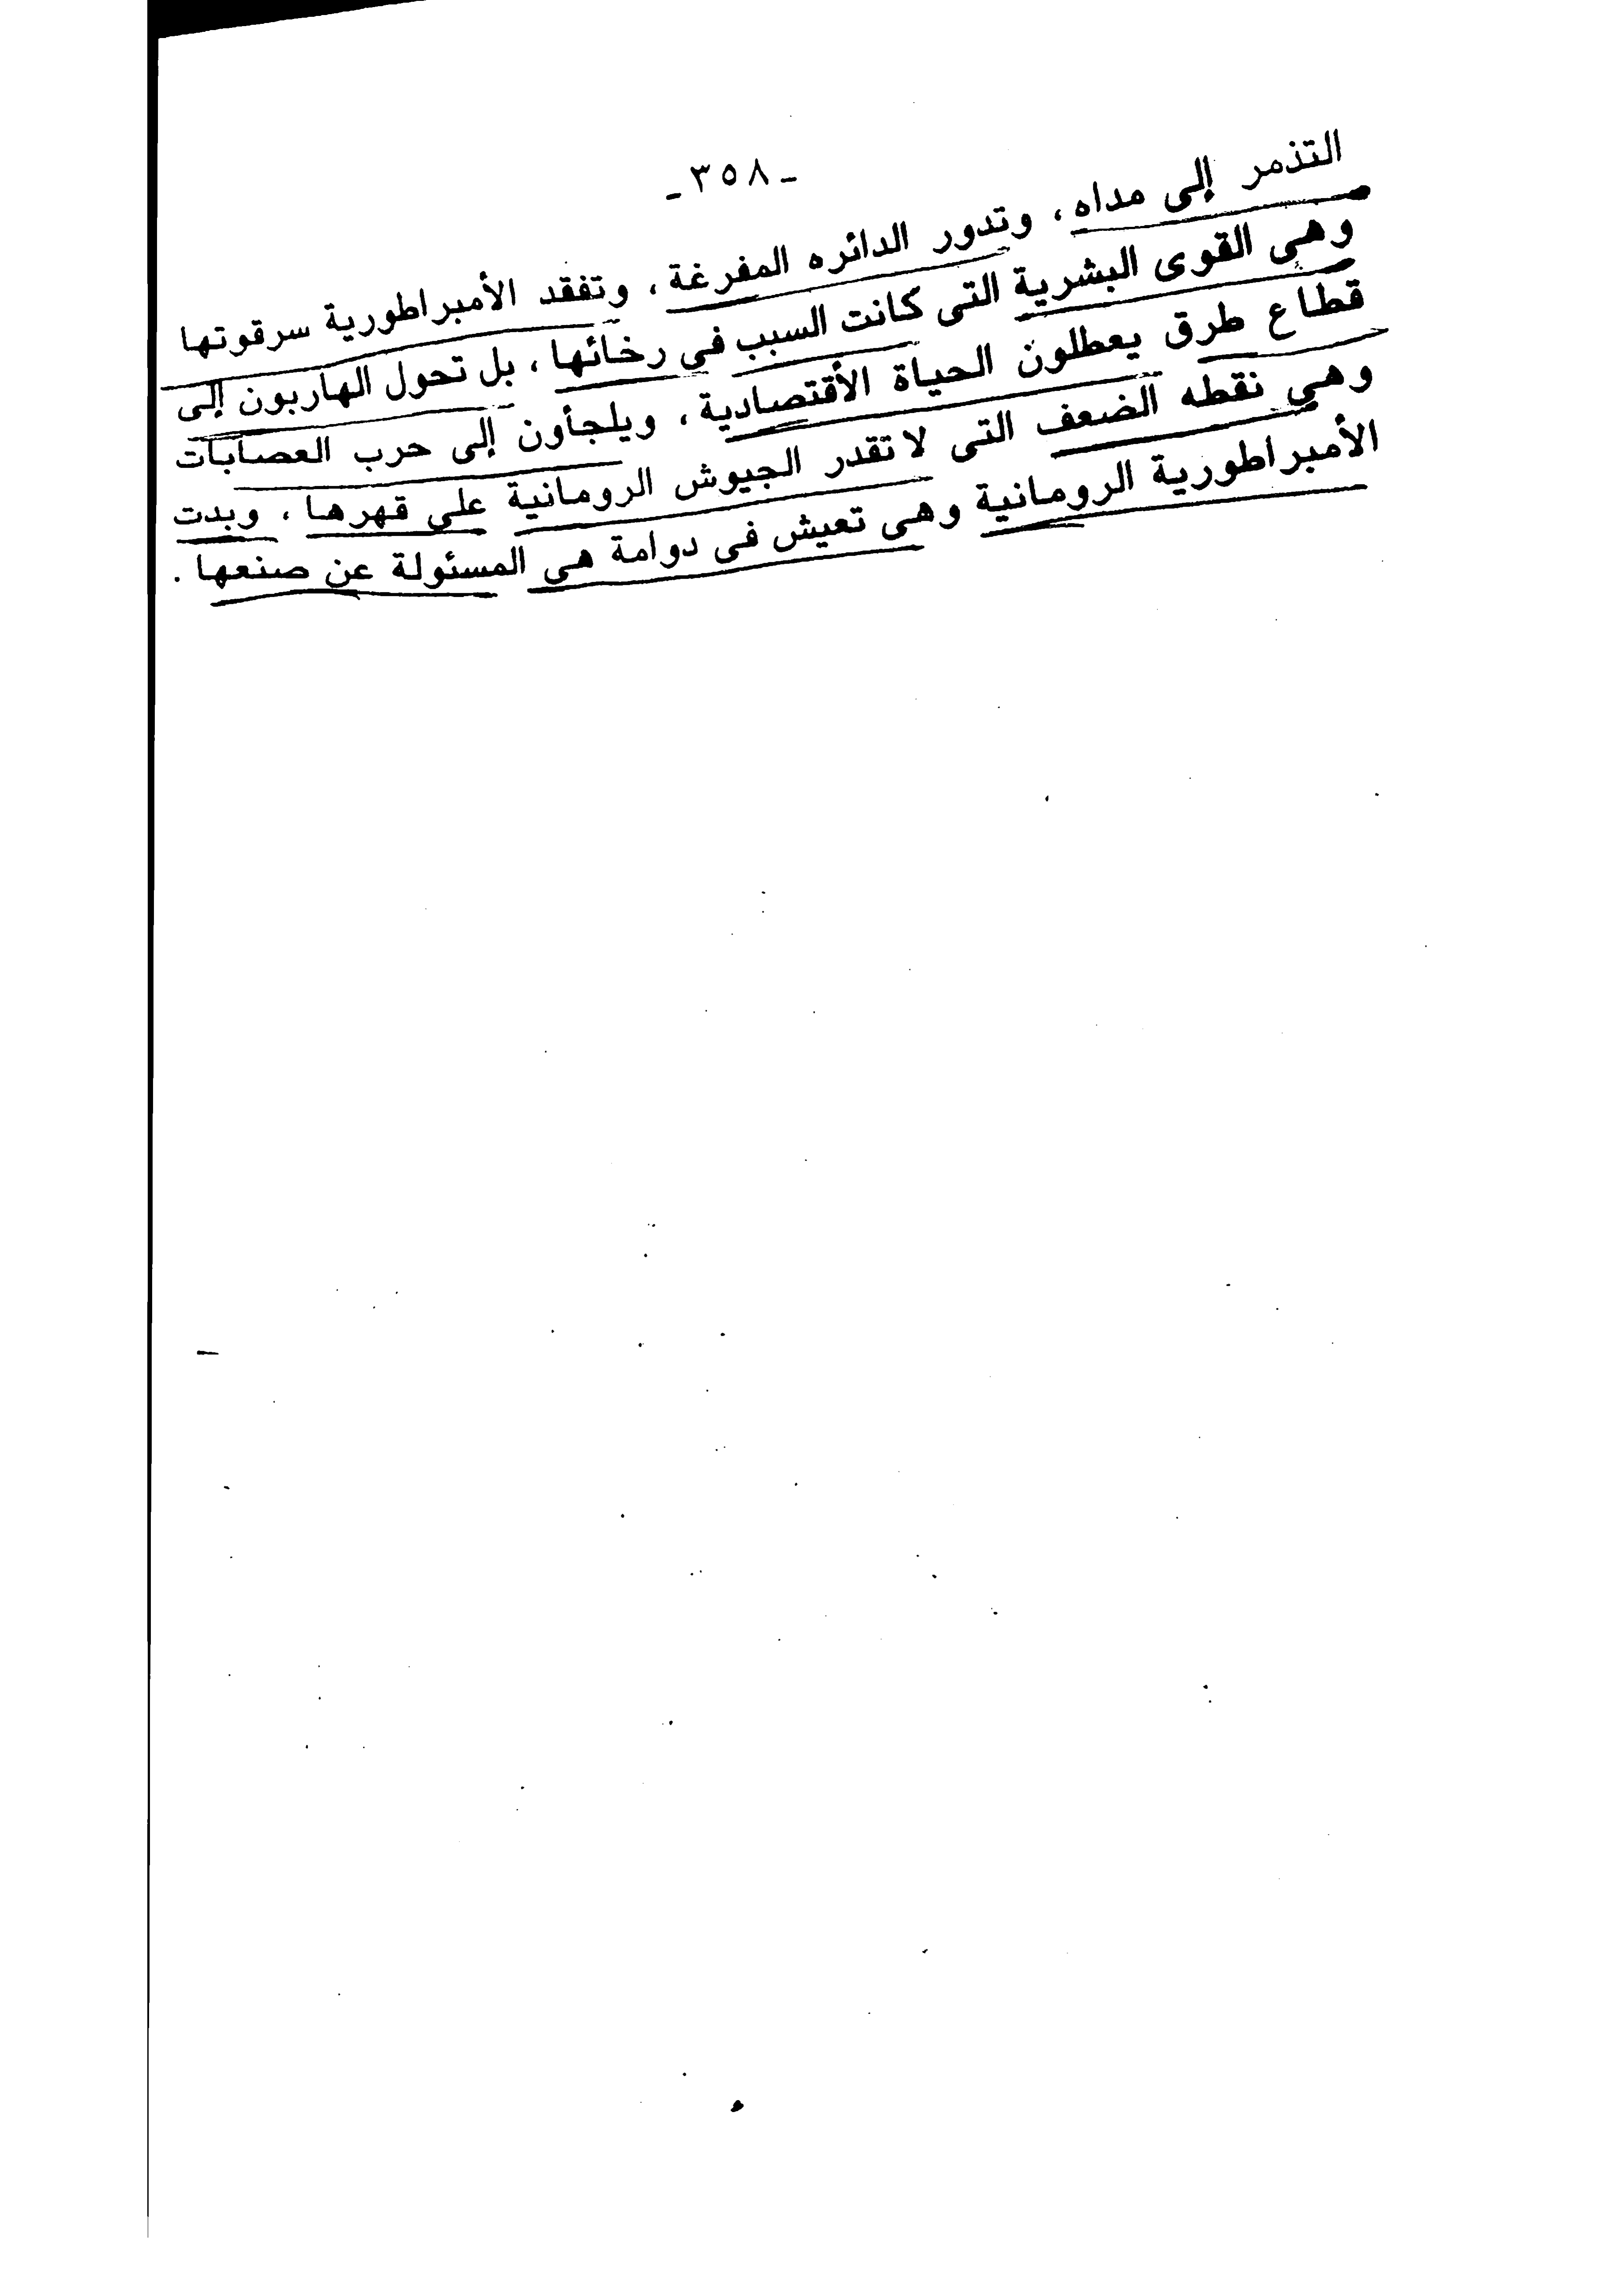 ـ ٣٥٨ ـ
التذمر إلى مداه ، وتدور الدائره المفرغة ، وتفقد الأمبراطورية سرقوتها
وهى القوى البشرية التى كانت السبب فى رخائها ، بل تحول الهاربون إلى
قطاع طرق يعطلون الحياة الأقتصادية ، ويلجأون إلى حرب العصابات
وهي نقطه الضعف التى لا تقدر الجيوش الرومانية على قهرها ، وبدت
الأمبراطورية الرومانية وهى تعيش فى دوامة هى المسئولة عن صنعها .